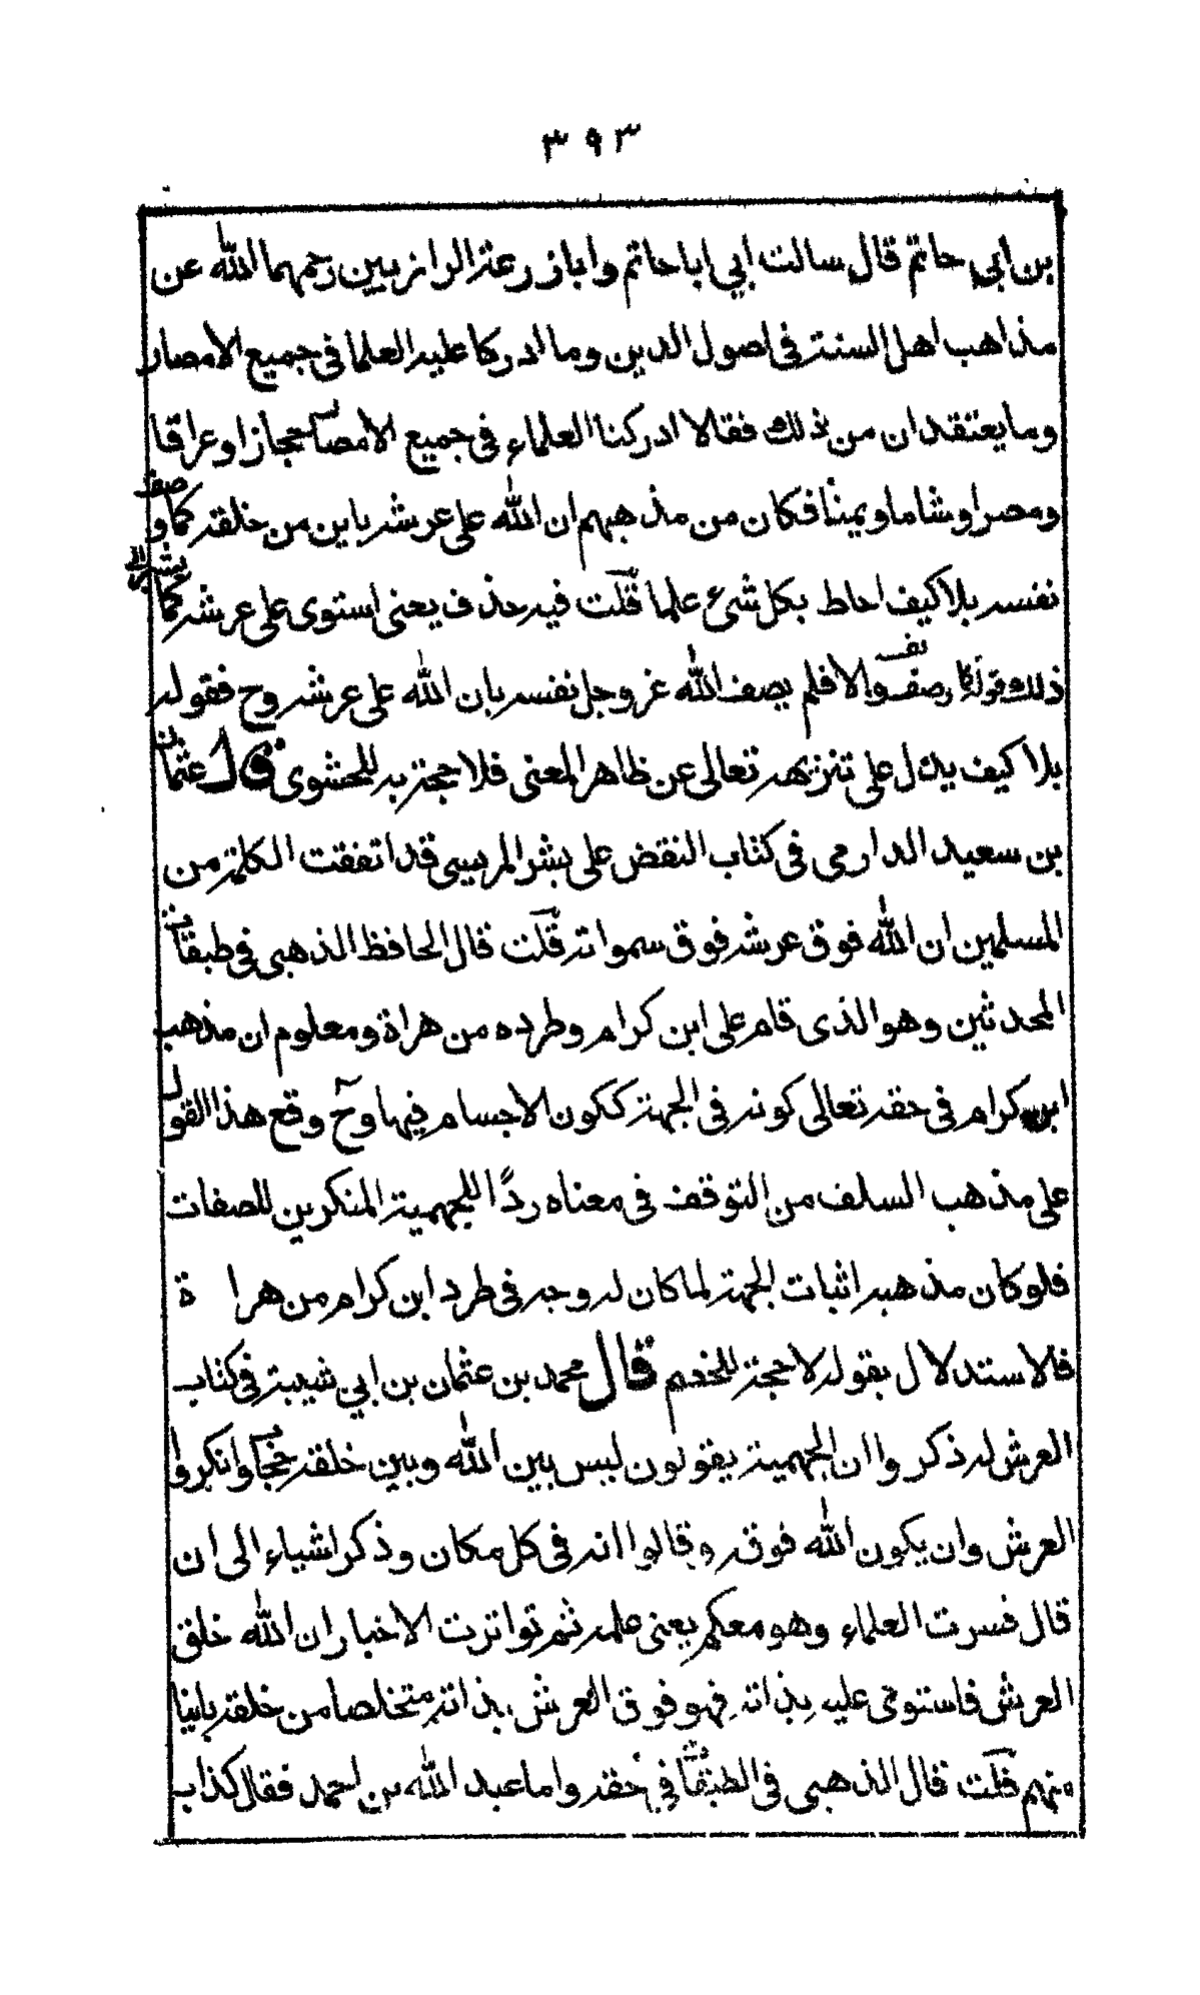 ٣٩٣
بن أبي حاتم قال سالت ابي اباحاتم وابازرعة الرازيين رحمهما الله عن
مذاهب اهل السنة في اصول الدين وما ادركا عليه العلما في جميع الامصار
وما يعتقدان من ذلك فقالا ادركنا العلماء في جميع الامصار حجازا وعراقا
ومصرا وشاما ويمنا فكان من مذهبهم ان الله على عرشه باين من خلقه كما وصف
نفسه بلا كيف احاط بكل شئ علما قلت فيه حذف يعني استوى على عرشه كما يشير الى
ذلك قوله كما وصف نفسه والا فلم يصف الله عز وجل نفسه بان الله على عرشه وح فقوله
بلا كيف يدل على تنزيهه تعالى عن ظاهر المعنى فلا حجة به للحشوى قال عثمان
بن سعيد الدارمي في كتاب النقض على بشر المريسي قد اتفقت الكلمة من
المسلمين ان الله فوق عرشه فوق سمواته قلت قال الحافظ الذهبي في طبقات
المحدثين وهو الذى قام على ابن كرام وطرده من هراة ومعلوم ان مذهب
ابن كرام في حقه تعالى كونه في الجهة ككون الاجسام فيها وح وقع هذا القول
على مذهب السلف من التوقف في معناه ردًا للجهمية المنكرين للصفات
فلو كان مذهبه اثبات الجهة لما كان له وجه في طرد ابن كرام من هراة
فلا استدلال بقوله لا حجة للخصم قال محمد بن عثمان بن ابي شيبة في كتاب
العرش له ذكروا ان الجهمية يقولون ليس بين الله وبين خلقه حجاب وانكروا
العرش وان يكون الله فوقه وقالوا انه في كل مكان وذكر اشياء الى ان
قال فسرت العلماء وهو معكم يعني علمه ثم تواترت الاخبار ان الله خلق
العرش فاستوى عليه بذاته فهو فوق العرش بذاته متخلصا من خلقه باينا
منهم قلت قال الذهبي في الطبقات في حقه واما عبد الله بن احمد فقال كذاب